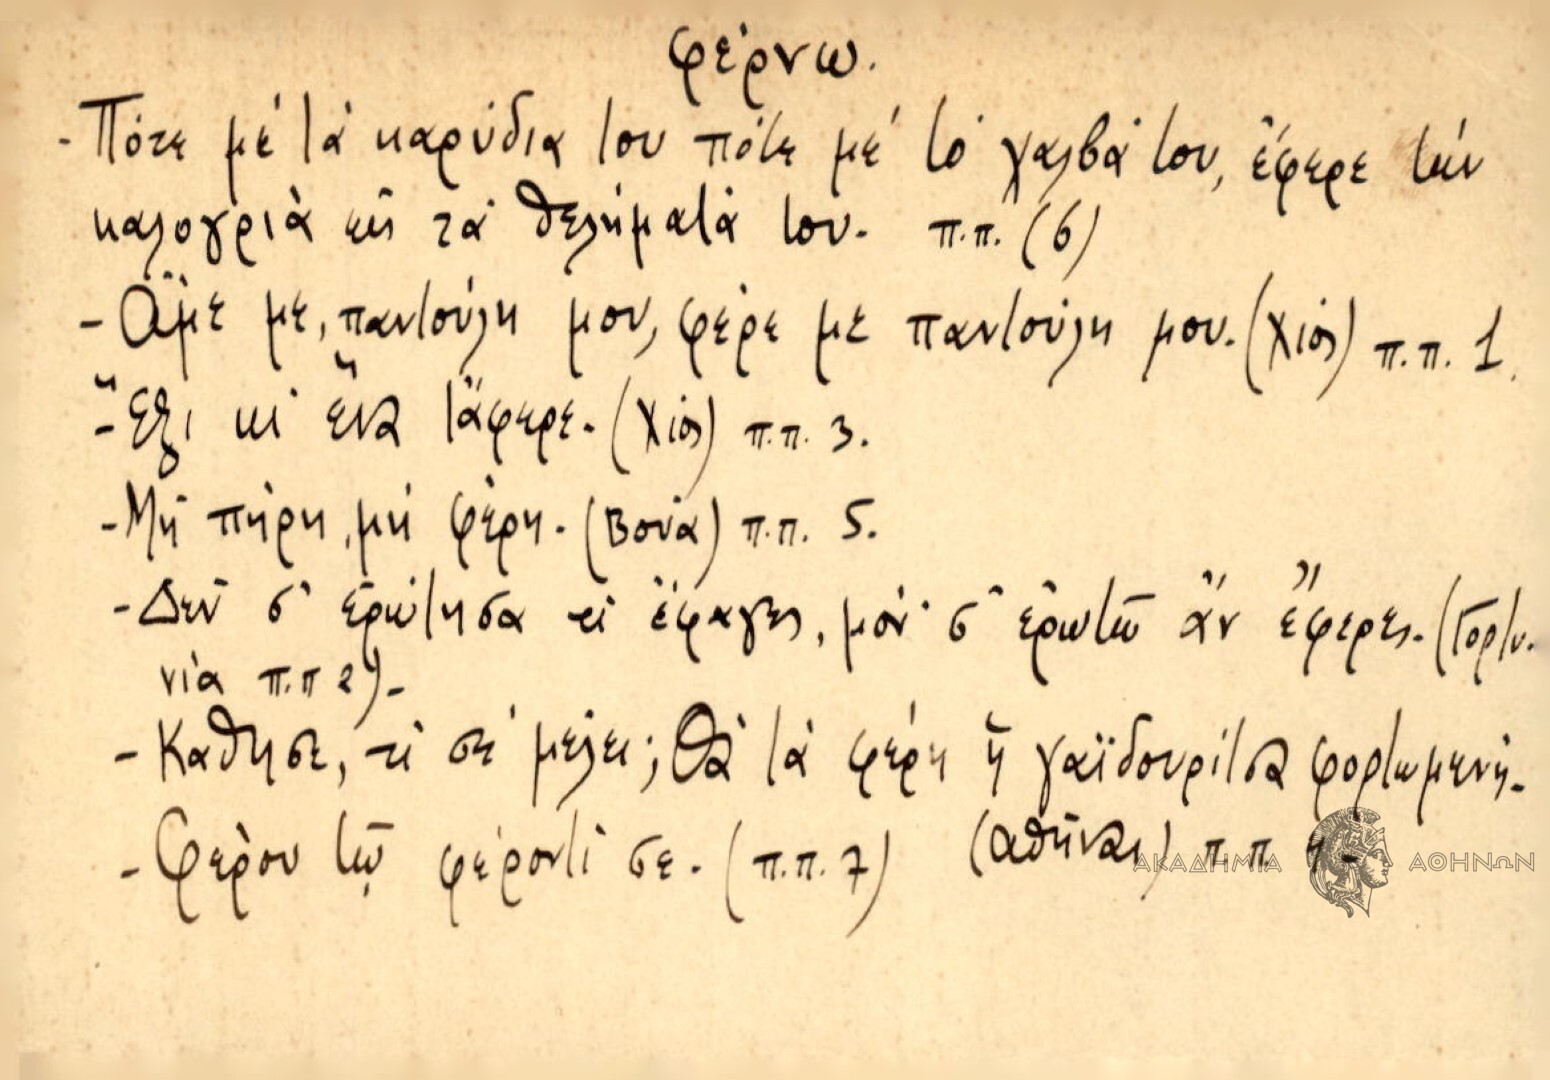 φέρνω.
- Πότε μέ τά καρύδια του πότε μέ τό χαλβά του, ἔφερε τήν
καλογριὰ εἰς τά θελήματά του. π.π. (6)
- Ἄμε με, παντούλη μου, φέρε με παντούλη μου. (Χίος) π.π. 1.
- Ἕξι κι ἕνα τἄφερε. (Χίος) π.π. 3.
- Μή πήρη, μή φέρη. (Βουα) π.π. 5.
- Δεν σ' ἐρώτησα τί ἔφαγες, μόν' σ' ἐρωτῶ ἄν ἔφερες. (Γορτυ-
νία π.π 2) -
- Καθησε, τί σέ μέλει; Θὰ τά φέρη ἡ γαϊδουρίτσα φορτωμενη.
- Φερου τῷ φέροντί σε. (π.π. 7) (Αθήναι) π.π. 4.
ΑΚΑΔΗΜΙΑ ΑΘΗΝΩΝ